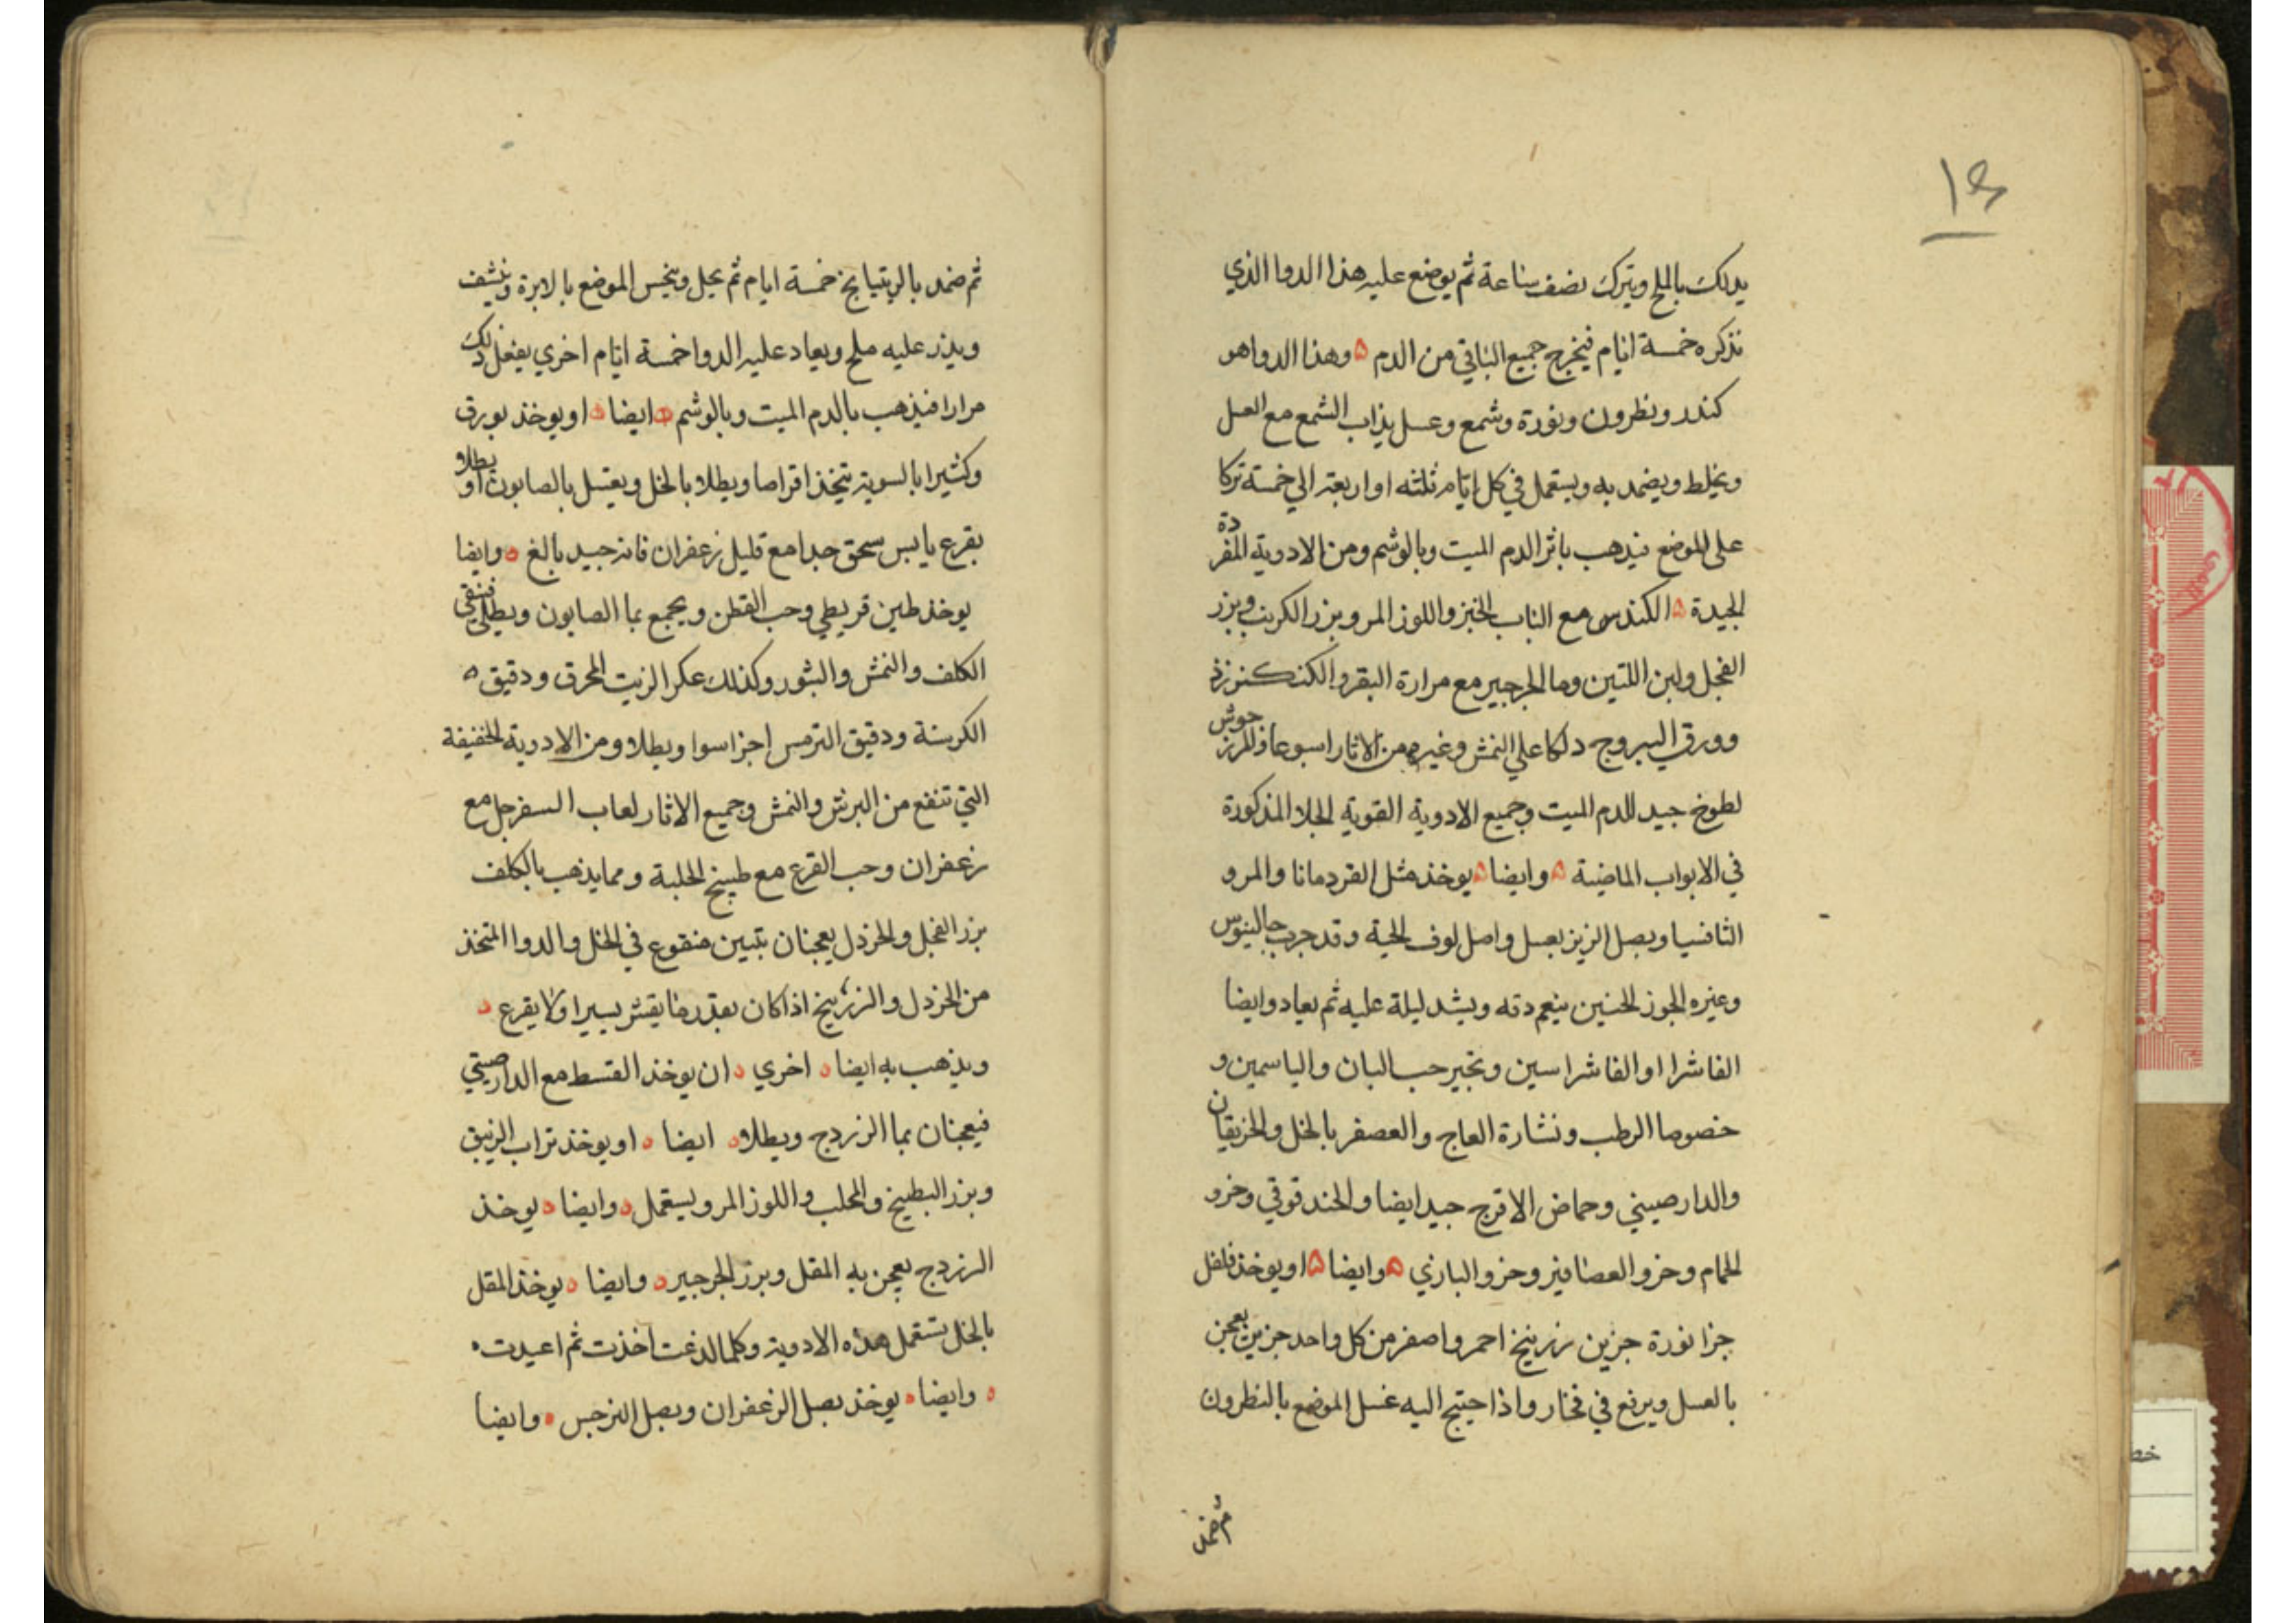 ١٤
يدلك بالملح ويترك نصف ساعة ثم يوضع عليه هذا الدوا الذي
نذكره خمسة ايام فيخرج جميع الباقي من الدم ه وهذا الدوا هو
كندر ونطرون ونورة وشمع وعسل يذاب الشمع مع العسل
ويخلط ويضمد به ويستعمل في كل ايام ثلثه او اربعة الي خمسة تركا
على الموضع فيذهب باثر الدم الميت وبالوشم ومن الادوية المفردة
الجيدة ه الكندس مع الباب الخبز واللوز المر وبزر الكرنب وبزر
الفجل ولبن التين وما الجرجير مع مرارة البقر والكنكرزد
وورق اليبروج دلكا علي النمش وغيره من الاثار اسبوعا والمرزجوش
لطوخ جيد للدم الميت وجميع الادوية القوية الجلا المذكورة
في الابواب الماضية ه وايضا ه يوخذ مثل القردمانا والمر و
الثافسيا وبصل الزيز بعسل واصل لوف الحية وقد جرب جالينوس
وغيره الجوز الحنين ينعم دقه ويشد ليلة عليه ثم يعاد وايضا
الفاشرا او الفاشراسين وتجير حب البان والياسمين و
خصوصا الرطب ونشارة العاج والعصفر بالخل والخربقان
والدارصيني وحماض الاترج جيد ايضا والحندقوقي وخرو
الحمام وخرو العصافير وخرو البازي ه وايضا ه او يوخذ فلفل
جزا نورة جزين زرنيخ احمر واصفر من كل واحد جزين يعجن
بالعسل ويرفع في فخار واذا احتيج اليه غسل الموضع بالنطرون
ثم ضمد
ثم ضمد بالريتيانج خمسة ايام ثم يحل وينخس الموضع بالابرة وينشف
ويذر عليه ملح ويعاد عليه الدوا خمسة ايام اخري يفعل ذلك
مرارا فيذهب بالدم الميت وبالوشم ه ايضا ه او يوخذ بورق
وكثيرا بالسوية يتخذ اقراصا ويطلا بالخل ويغسل بالصابون او يطلا
بقرع يابس سحق جدا مع قليل زعفران فانه جيد بالغ ه وايضا
يوخذ طين قريطي وحب القطن ويجمع بما الصابون ويطلي فينقي
الكلف والنمش والبثور وكذلك عكر الزيت المحرق ودقيق ه
الكرسنة ودقيق الترمس اجزا سوا ويطلا ومن الادوية الخفيفة
التي تنفع من البرش والنمش وجميع الاثار لعاب السفرجل مع
زعفران وحب القرع مع طبيخ الحلبة ومما يذهب بالكلف
بزر الفجل والخردل يعجنان بتين منقوع في الخل والدوا المتخذ
من الخردل والزرنيخ اذا كان بقدر ما يقشر يسيرا ولا يقرع ه
ويذهب به ايضا ه اخري ه ان يوخذ القسط مع الدارصيني
فيعجنان بما الزردج ويطلا ه ايضا ه او يوخذ تراب الزيبق
وبزر البطيخ والمحلب واللوز المر ويستعمل ه وايضا ه يوخذ
الزردج يعجن به المقل وبزر الجرجير ه وايضا ه يوخذ المقل
بالخل تستعمل هذه الادوية وكلما لدغت اخذت ثم اعيدت ه
ه وايضا ه يوخذ بصل الزعفران وبصل النرجس ه وايضا